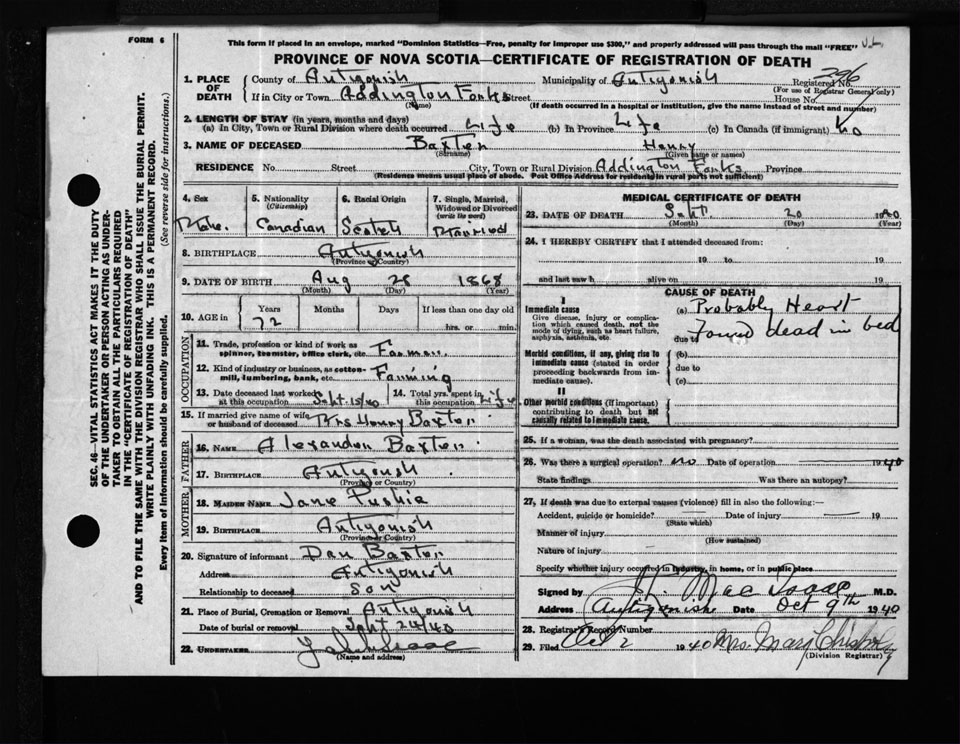 FORM 6
This form if placed in an envelope, marked "Dominion Statistics—Free, penalty for improper use $300," and properly addressed will pass through the mail "FREE"
PROVINCE OF NOVA SCOTIA—CERTIFICATE OF REGISTRATION OF DEATH
1. PLACE OF DEATH County of Antigonish Municipality of Antigonish Registered No. 296
(For use of Registrar General only)
If in City or Town Addington Forks Street House No.
(Name) (If death occurred in a hospital or institution, give the name instead of street and number)
2. LENGTH OF STAY (in years, months and days)
(a) In City, Town or Rural Division where death occurred Life (b) In Province Life (c) In Canada (if immigrant) No
3. NAME OF DECEASED Baxter Henry
(Surname) (Given name or names)
RESIDENCE No. Street City, Town or Rural Division Addington Forks Province
(Residence means usual place of abode. Post Office Address for residents in rural parts not sufficient)
4. Sex Male.
5. Nationality (Citizenship) Canadian
6. Racial Origin Scotch
7. Single, Married, Widowed or Divorced (write the word) Married
8. BIRTHPLACE Antigonish
(Province or Country)
9. DATE OF BIRTH Aug 28 1868
(Month) (Day) (Year)
10. AGE in Years Months Days If less than one day old
72 hrs. or min.
OCCUPATION
11. Trade, profession or kind of work as spinner, teamster, office clerk, etc. Farmer
12. Kind of industry or business, as cotton-mill, lumbering, bank, etc. Farming
13. Date deceased last worked at this occupation Sept. 15/40 14. Total yrs. spent in this occupation Life
15. If married give name of wife or husband of deceased Mrs Henry Baxter
FATHER
16. NAME Alexander Baxter
17. BIRTHPLACE Antigonish
(Province or Country)
MOTHER
18. MAIDEN NAME Jane Pushie
19. BIRTHPLACE Antigonish
(Province or Country)
20. Signature of informant Dan Baxter
Address Antigonish
Relationship to deceased Son
21. Place of Burial, Cremation or Removal Antigonish
Date of burial or removal Sept 24/40
22. UNDERTAKER
(Name and address)
MEDICAL CERTIFICATE OF DEATH
23. DATE OF DEATH Sept. 20 1940
(Month) (Day) (Year)
24. I HEREBY CERTIFY that I attended deceased from:
19 to 19
and last saw h alive on 19
CAUSE OF DEATH
I
Immediate cause
Give disease, injury or complication which caused death, not the mode of dying, such as heart failure, asphyxia, asthenia, etc.
(a) Probably Heart
due to Found dead in bed
Morbid conditions, if any, giving rise to immediate cause (stated in order proceeding backwards from immediate cause).
(b)
due to
(c)
II
Other morbid conditions (if important) contributing to death but not causally related to immediate cause.
25. If a woman, was the death associated with pregnancy?
26. Was there a surgical operation? no Date of operation 1940
State findings Was there an autopsy?
27. If death was due to external causes (violence) fill in also the following:—
Accident, suicide or homicide? Date of injury 19
(State which)
Manner of injury
(How sustained)
Nature of injury
Specify whether injury occurred in industry, in home, or in public place
Signed by M.D.
Address Antigonish Date Oct 9th 1940
28. Registrar's Record Number
29. Filed Oct 2 1940 Mrs. Mary Chisholm
(Division Registrar)
SEC. 46—VITAL STATISTICS ACT MAKES IT THE DUTY
OF THE UNDERTAKER OR PERSON ACTING AS UNDER-
TAKER TO OBTAIN ALL THE PARTICULARS REQUIRED
IN THE "CERTIFICATE OF REGISTRATION OF DEATH"
AND TO FILE THE SAME WITH THE DIVISION REGISTRAR WHO SHALL ISSUE THE BURIAL PERMIT.
WRITE PLAINLY WITH UNFADING INK. THIS IS A PERMANENT RECORD.
Every item of information should be carefully supplied. (See reverse side for instructions.)